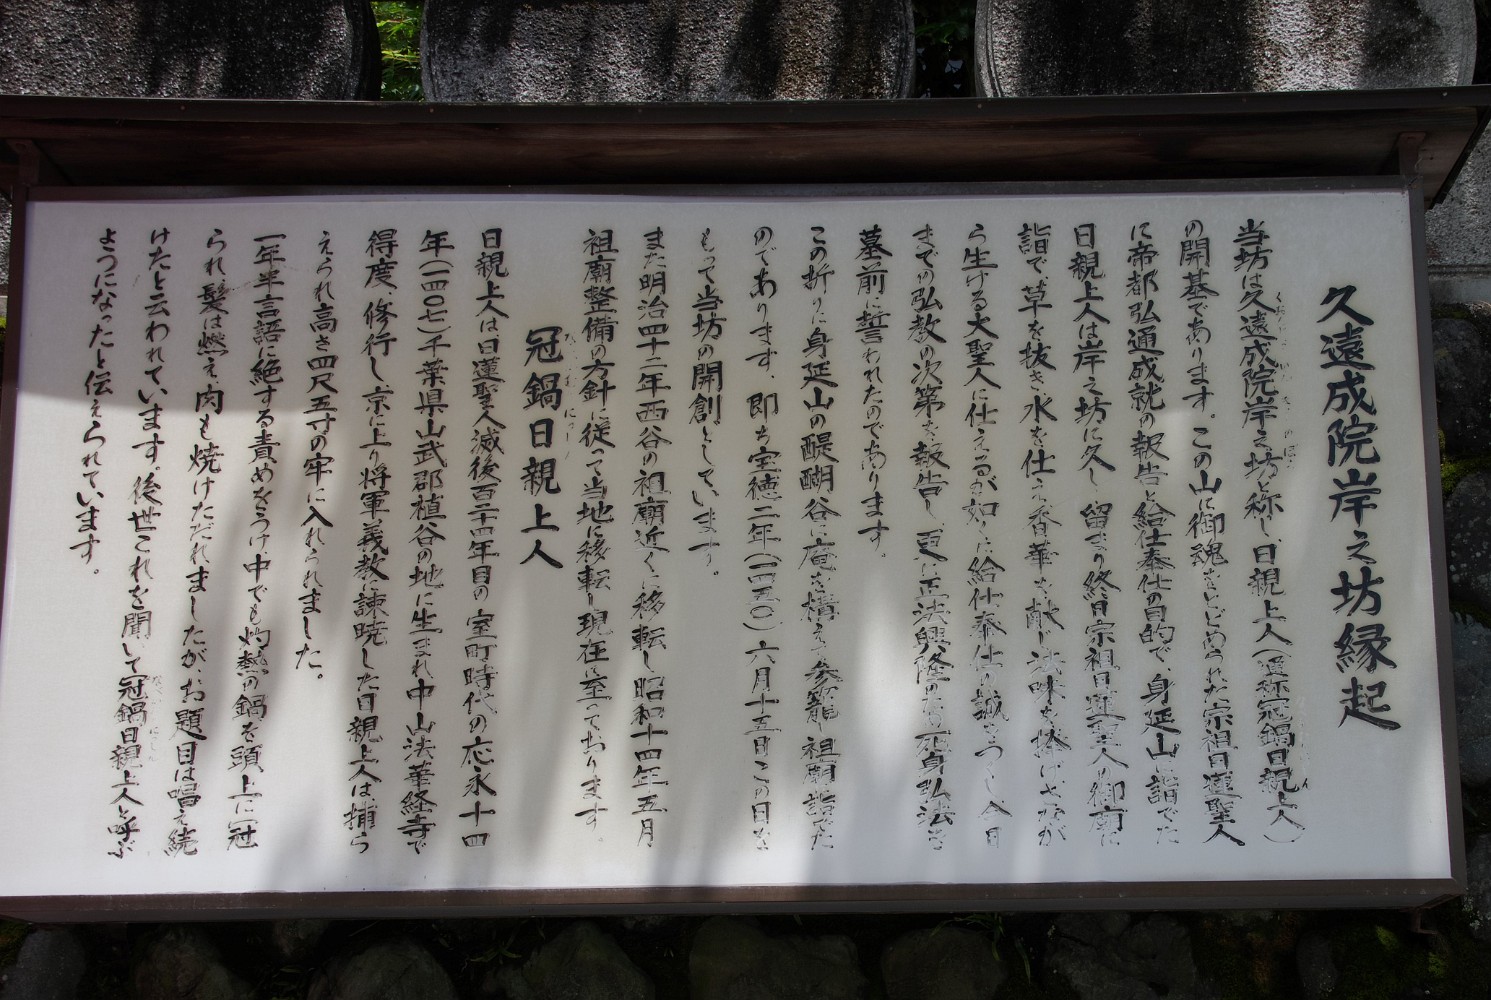 久遠成院岸之坊縁起
当坊は久遠成院岸之坊と称し、日親上人(通称冠鍋日親上人)
の開基であります。この山に御魂をとどめられた宗祖日蓮聖人
に帝都弘通成就の報告と給仕奉仕の目的で、身延山に詣でた
日親上人は岸之坊に久しく留まり終日宗祖日蓮聖人の御廟に
詣で草を抜き水を仕え香華を献じ法味を捧げさなが
ら生ける大聖人に仕えるが如くに給仕奉仕の誠をつくし今日
までの弘教の次第を報告し、更に正法興隆のため死身弘法を
墓前に誓われたのであります。
この折りに身延山の醍醐谷に庵を構えて参籠し祖廟に詣でた
のであります。即ち宝徳二年(一四五〇)六月十五日この日を
もって当坊の開創としています。
また明治四十二年西谷の祖廟近くに移転し昭和十四年五月
祖廟整備の方針に従って当地に移転し現在に至っております。
冠鍋日親上人
日親上人は日蓮聖人滅後百二十四年目の室町時代の応永十四
年(一四〇七)千葉県山武郡植谷の地に生まれ中山法華経寺で
得度、修行し京に上り将軍義教に諫暁した日親上人は捕ら
えられ高さ四尺五寸の牢に入れられました。
一年半言語に絶する責めをうけ、中でも灼熱の鍋を頭上に冠
られ、髪は燃え肉も焼けただれましたが、お題目は唱え続
けたと云われています。後世これを聞いて冠鍋日親上人と呼ぶ
ようになったと伝えられています。